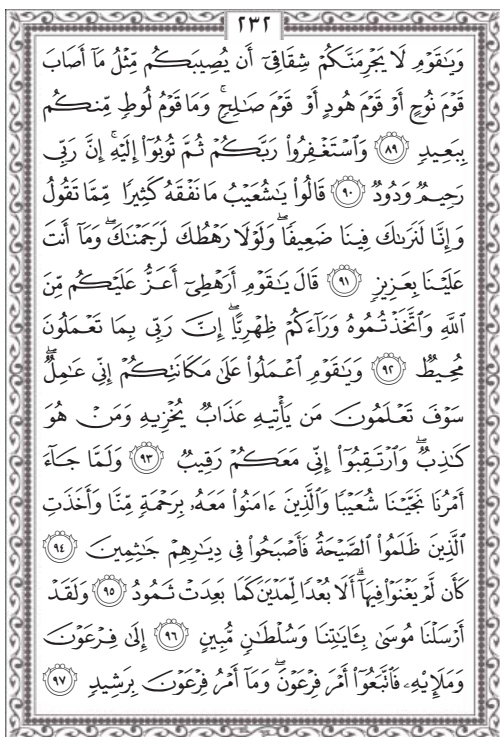 ٢٣٢
وَيَٰقَوْمِ لَا يَجْرِمَنَّكُمْ شِقَاقِىٓ أَن يُصِيبَكُم مِّثْلُ مَآ أَصَابَ
قَوْمَ نُوحٍ أَوْ قَوْمَ هُودٍ أَوْ قَوْمَ صَٰلِحٍ ۚ وَمَا قَوْمُ لُوطٍ مِّنكُم
بِبَعِيدٍ ٨٩ وَٱسْتَغْفِرُوا۟ رَبَّكُمْ ثُمَّ تُوبُوٓا۟ إِلَيْهِ ۚ إِنَّ رَبِّى
رَحِيمٌ وَدُودٌ ٩٠ قَالُوا۟ يَٰشُعَيْبُ مَا نَفْقَهُ كَثِيرًا مِّمَّا تَقُولُ
وَإِنَّا لَنَرَىٰكَ فِينَا ضَعِيفًا ۖ وَلَوْلَا رَهْطُكَ لَرَجَمْنَٰكَ ۖ وَمَآ أَنتَ
عَلَيْنَا بِعَزِيزٍ ٩١ قَالَ يَٰقَوْمِ أَرَهْطِىٓ أَعَزُّ عَلَيْكُم مِّنَ
ٱللَّهِ وَٱتَّخَذْتُمُوهُ وَرَآءَكُمْ ظِهْرِيًّا ۖ إِنَّ رَبِّى بِمَا تَعْمَلُونَ
مُحِيطٌ ٩٢ وَيَٰقَوْمِ ٱعْمَلُوا۟ عَلَىٰ مَكَانَتِكُمْ إِنِّى عَٰمِلٌ ۖ
سَوْفَ تَعْلَمُونَ مَن يَأْتِيهِ عَذَابٌ يُخْزِيهِ وَمَنْ هُوَ
كَٰذِبٌ ۖ وَٱرْتَقِبُوٓا۟ إِنِّى مَعَكُمْ رَقِيبٌ ٩٣ وَلَمَّا جَآءَ
أَمْرُنَا نَجَّيْنَا شُعَيْبًا وَٱلَّذِينَ ءَامَنُوا۟ مَعَهُۥ بِرَحْمَةٍ مِّنَّا وَأَخَذَتِ
ٱلَّذِينَ ظَلَمُوا۟ ٱلصَّيْحَةُ فَأَصْبَحُوا۟ فِى دِيَٰرِهِمْ جَٰثِمِينَ ٩٤
كَأَن لَّمْ يَغْنَوْا۟ فِيهَآ ۗ أَلَا بُعْدًا لِّمَدْيَنَ كَمَا بَعِدَتْ ثَمُودُ ٩٥ وَلَقَدْ
أَرْسَلْنَا مُوسَىٰ بِـَٔايَٰتِنَا وَسُلْطَٰنٍ مُّبِينٍ ٩٦ إِلَىٰ فِرْعَوْنَ
وَمَلَإِي۟هِۦ فَٱتَّبَعُوٓا۟ أَمْرَ فِرْعَوْنَ ۖ وَمَآ أَمْرُ فِرْعَوْنَ بِرَشِيدٍ ٩٧